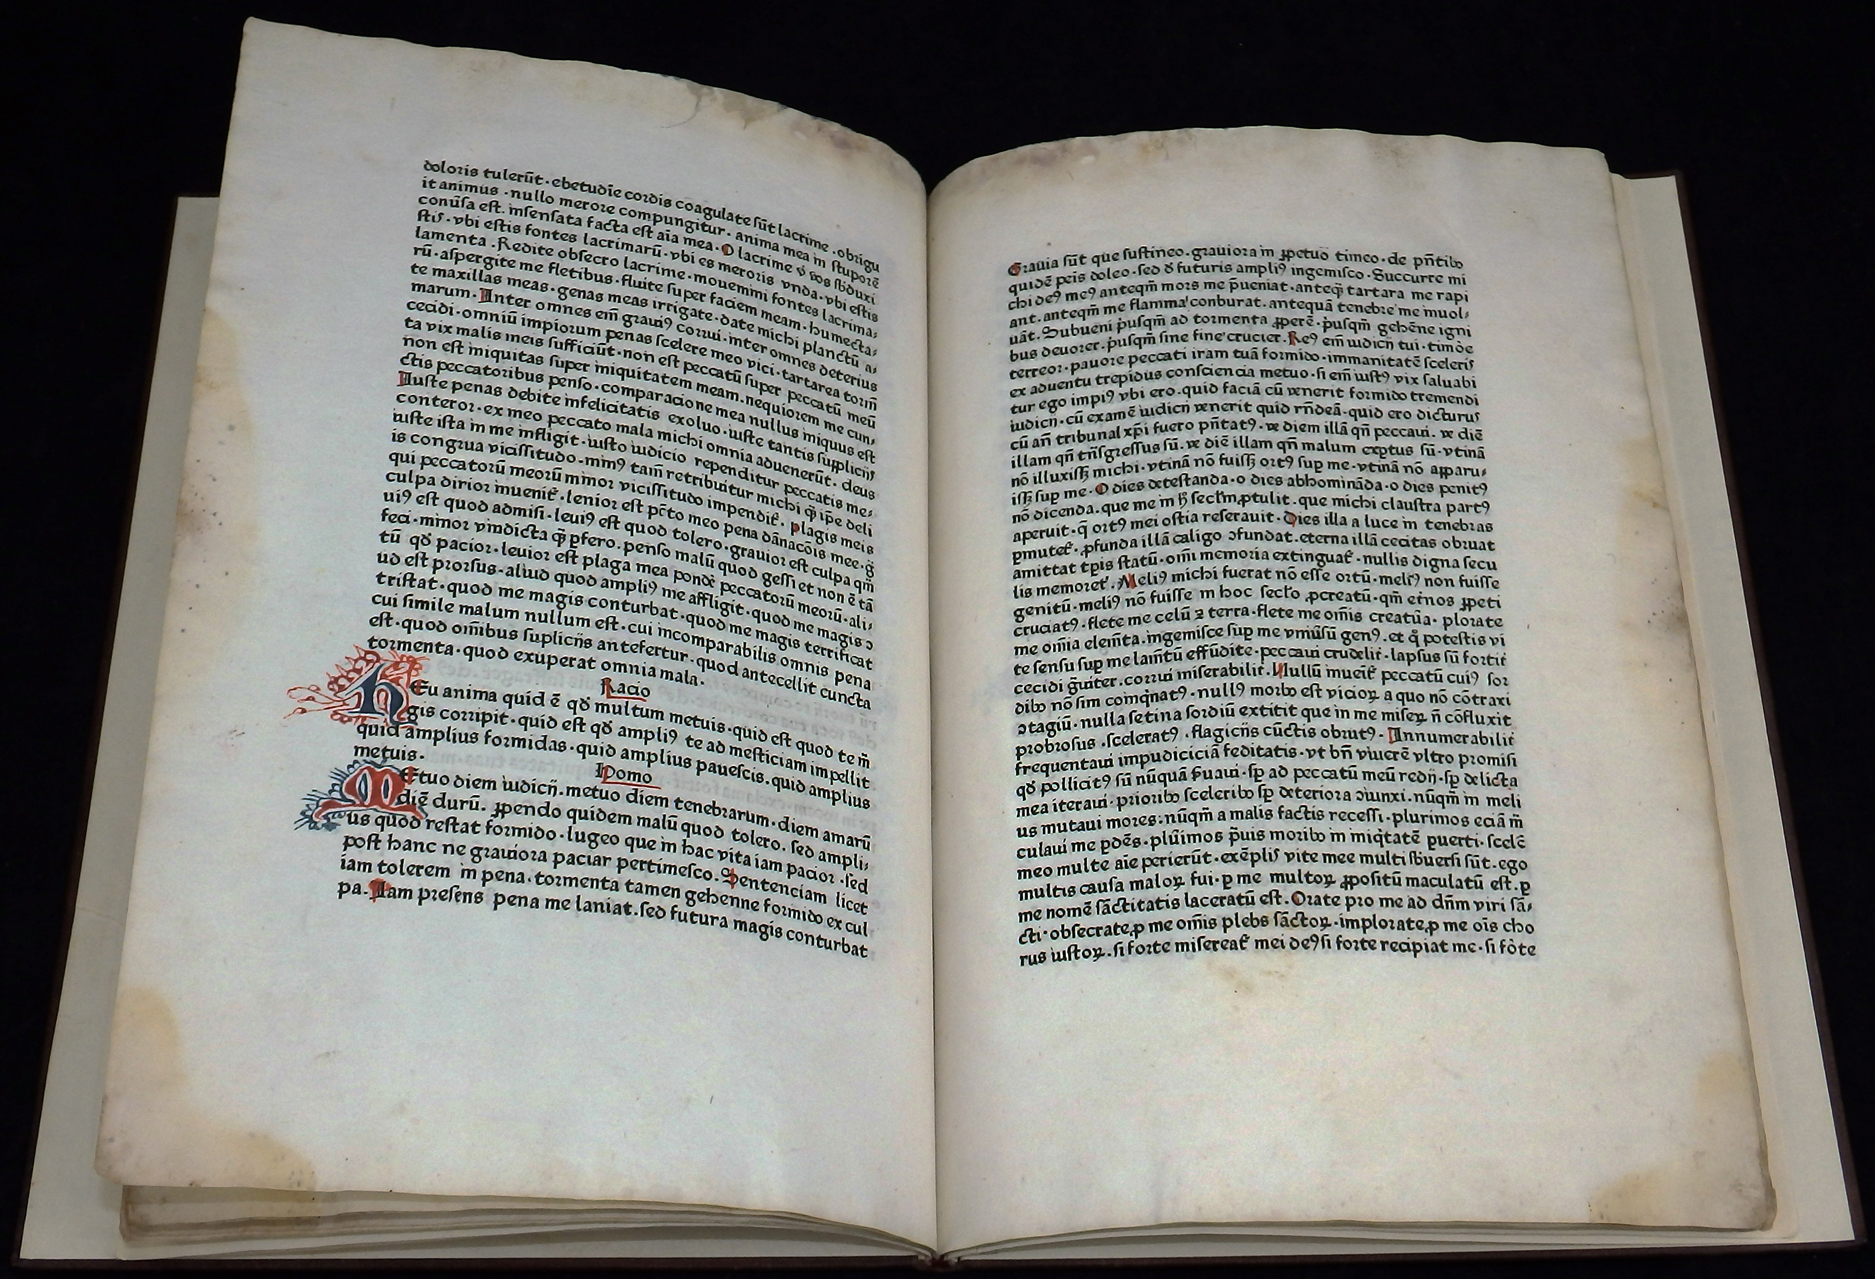 doloris tulerūt · ebetudīe cordis coagulate sūt lacrime · obrigu
it animus · nullo merore compungitur · anima mea in stuporē
conūsa est. insensata facta est aīa mea · O lacrime vbi vos sbduxi
stis · vbi estis fontes lacrimarū · vbi es meroris vnda · vbi estis
lamenta . Redite obsecro lacrime · mouemini fontes lacrima⸗
rū · aspergite me fletibus · fluite super faciem meam · humecta⸗
te maxillas meas · genas meas irrigate · date michi planctū a⸗
marum · Inter omnes em̄ grauiꝰ corrui · inter omnes deterius
cecidi · omniū impiorum penas scelere meo vici · tartarea torm̄
ta vix malis meis sufficiūt · non est peccatū super peccatū meū
non est iniquitas super iniquitatem meam. nequiorem me cun⸗
ctis peccatoribus penso · comparacione mea nullus iniquus est
Iuste penas debite infelicitatis exoluo · iuste tantis suppliciis
conteror · ex meo peccato mala michi omnia aduenerūt · deus
iuste ista in me infligit · iusto iudicio rependitur peccatis me⸗
is congrua vicissitudo · minꝰ tam̄ retribuitur michi q̄ ip̄e deli
qui peccatorū meorū minor vicissitudo impendit̄. Plagis meis
culpa dirior inuenit̄ · lenior est pc̄to meo pena dānacōis mee · ḡ
uiꝰ est quod admisi · leuiꝰ est quod tolero · grauior est culpa qm̄
feci · minor vindicta q̄ ꝑfero. penso malū quod gessi et non ē tā
tū qđ pacior · leuior est plaga mea ponde peccatorū meorū · ali⸗
ud est prorsus · aliud quod ampliꝰ me affligit · quod me magis ↄ
tristat · quod me magis conturbat · quod me magis terrificat
cui simile malum nullum est · cui incomparabilis omnis pena
est · quod om̄ibus supliciis antefertur · quod antecellit cuncta
tormenta · quod exuperat omnia mala ·
Racio
HEu anima quid ē qđ multum metuis · quid est quod te m̄
gis corripit · quid est qđ ampliꝰ te ad mesticiam impellit
quid amplius formidas · quid amplius pauescis · quid amplius
metuis ·
Homo
MEtuo diem iudicij. metuo diem tenebrarum · diem amarū
diē durū. ꝑpendo quidem malū quod tolero. sed ampli⸗
us quod restat formido · lugeo que in hac vita iam pacior · sed
post hanc ne grauiora paciar pertimesco. Sentenciam licet
iam tolerem in pena · tormenta tamen gehenne formido ex cul
pa. Iam presens pena me laniat. sed futura magis conturbat
Grauia sūt que sustineo. grauiora in ꝑpetuo timeo · de pn̄tibꝰ
quidē peis doleo · sed đ futuris ampliꝰ ingemisco · Succurre mi
chi deꝰ meꝰ anteqm̄ mors me p̄ueniat · anteq̄ tartara me rapi
ant · anteqm̄ me flamma conburat. antequā tenebre me inuol⸗
uāt. Subueni p̓usqm̄ ad tormenta ꝓperē · p̓usqm̄ gehēne igni
bus deuorer. p̓usqm̄ sine fine crucier. Reꝰ em̄ iudicii tui · timōe
terreor · pauore peccati iram tuā formido · immanitatē sceleris
ex aduentu trepidus consciencia metuo · si em̄ iustꝰ vix saluabi
tur ego impiꝰ vbi ero · quid faciā cū venerit formido tremendi
iudicii · cū examē iudicii venerit quid rn̄deā · quid ero dicturus
cū an̄ tribunal xp̄i fuero pn̄tatꝰ · ve diem illā qn̄ peccaui. ve diē
illam qn̄ tn̄sgressus sū · ve diē illam qn̄ malum exptus sū · vtinā
nō illuxissꝫ michi · vtinā nō fuissꝫ ortꝰ sup me · vtinā nō apparu⸗
issꝫ sup me · O dies detestanda · o dies abhomināda · o dies penitꝰ
nō dicenda. que me in h̄ seclm̄ ꝓtulit . que michi claustra partꝰ
aperuit · q̄ ortꝰ mei ostia reserauit · Dies illa a luce in tenebras
ꝑmutet̄ · ꝓfunda illā caligo ↄfundat. eterna illā cecitas obruat
amittat tp̄is statū · om̄i memoria extinguat̄ · nullis digna secu
lis memoret̄. Meliꝰ michi fuerat nō esse ortū · meliꝰ non fuisse
genitū · meliꝰ nō fuisse in hoc seclo ꝓcreatū · qm̄ et̄nos ꝑpeti
cruciatꝰ · flete me celū ⁊ terra · flete me om̄is creatūa · plorate
me om̄ia elem̄ta. ingemisce sup me vniūsū genꝰ. et q̄ potestis vi
te sensu sup me lam̄tū effūdite · peccaui crudelit̄ · lapsus sū fortit̄
cecidi ḡuiter. corrui miserabilit̄. Nullū inueit̄ peccatū cuiꝰ sor
dibꝰ nō sim coinq̄natꝰ · nullꝰ morbꝰ est vicioꝝ a quo nō cōtraxi
ↄtagiū · nulla setina sordiū extitit que in me miseꝝ n̄ cōfluxit
probrosus · sceleratꝰ · flagiciis cūctis obrutꝰ · Innumerabilit̄
frequentaui impudiciciā feditatis · vt bn̄ viuerē vltro promisi
qđ pollicitꝰ sū nūquā ẜuaui · sꝑ ad peccatū meū redij · sꝑ delicta
mea iteraui · prioribꝰ sceleribꝰ sꝑ deteriora ↄiunxi. nūqm̄ in meli
us mutaui mores: nūqm̄ a malis factis recessi · plurimos eciā m̄
culaui me ꝑdēs · plūimos p̄uis moribꝰ in iniq̄tatē ꝑuerti · scelē
meo multe aīe perierūt · exēplis vite mee multi sbuersi sūt · ego
multis causa maloꝝ fui · ꝑ me multoꝝ ꝓpositū maculatū est · ꝑ
me nomē sāctitatis laceratū est. Orate pro me ad dn̄m viri sā⸗
cti · obsecrate ꝓ me om̄is plebs sāctoꝝ · implorate ꝓ me oīs cho
rus iustoꝝ · si forte misereat̄ mei deꝰ si forte recipiat me · si fōte